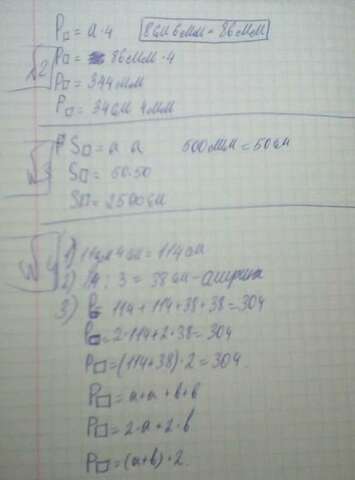 P□ = a · 4   8см 6мм = 86мм
№2 P□ = 86мм · 4
P□ = 344мм
P□ = 34см 4мм
№3 S□ = a · a   500мм = 50см
S□ = 50 · 50
S□ = 2500см
№4 1) 11дм 4см = 114см
2) 114 : 3 = 38см - ширина
3) P□ = 114 + 114 + 38 + 38 = 304
P□ = 2 · 114 + 2 · 38 = 304
P□ = (114 + 38) · 2 = 304
P□ = a + a + в + в
P□ = 2 · a + 2 · в
P□ = (a + в) · 2